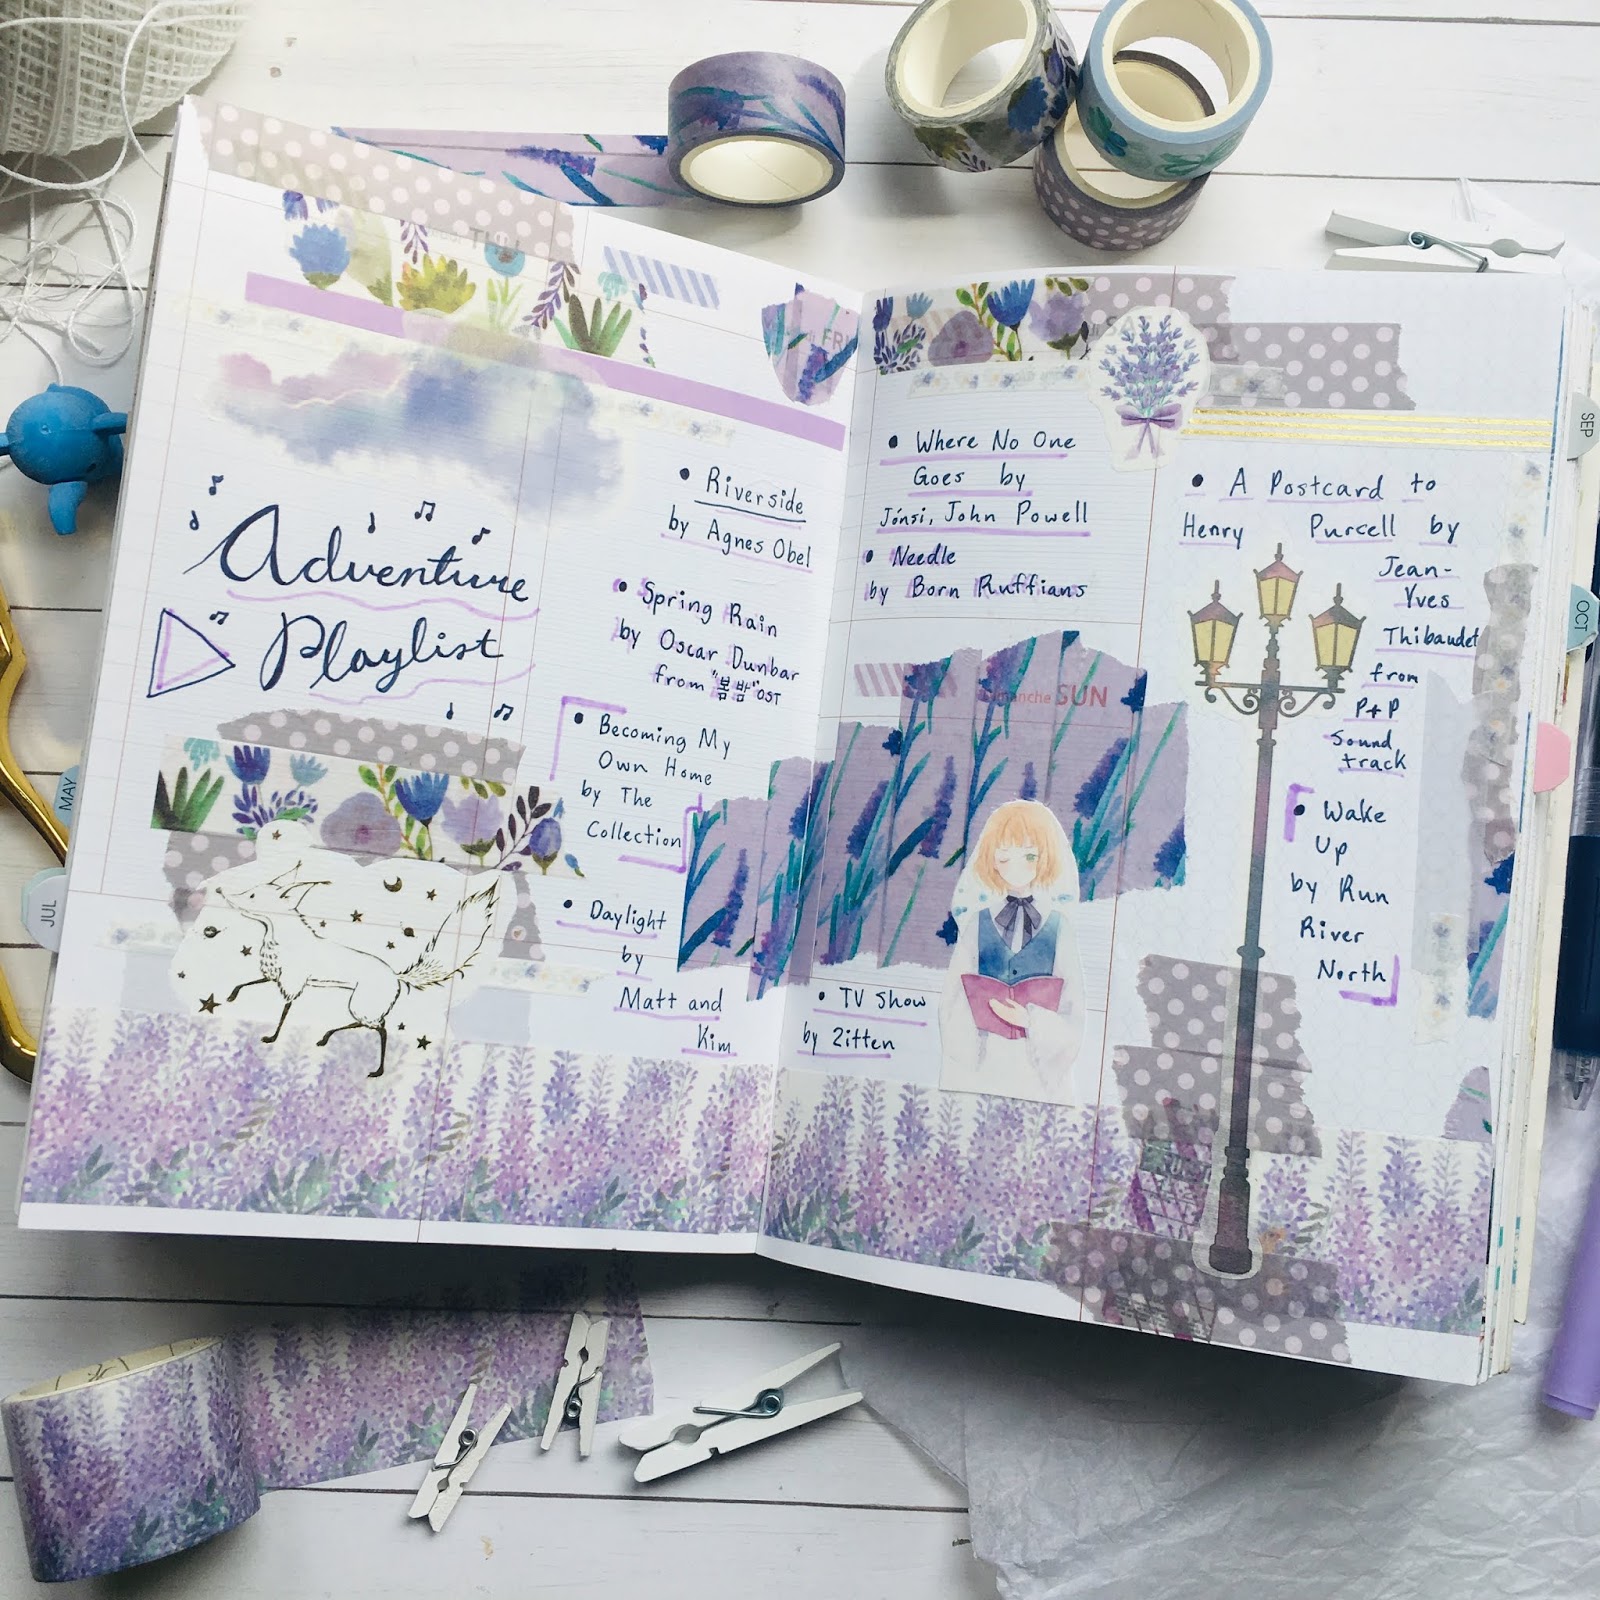 Adventure
Playlist
Riverside
by Agnes Obel
Spring Rain
by Oscar Dunbar
from "봄밤" OST
Becoming My
Own Home
by The
Collection
Daylight
by
Matt and
Kim
FRI
Where No One
Goes by
Jónsi, John Powell
Needle
by Born Ruffians
dimanche SUN
TV Show
by Zitten
A Postcard to
Henry Purcell by
Jean-
Yves
Thibaudet
from
P+P
Sound
track
Wake
Up
by Run
River
North
MAY
JUL
SEP
OCT